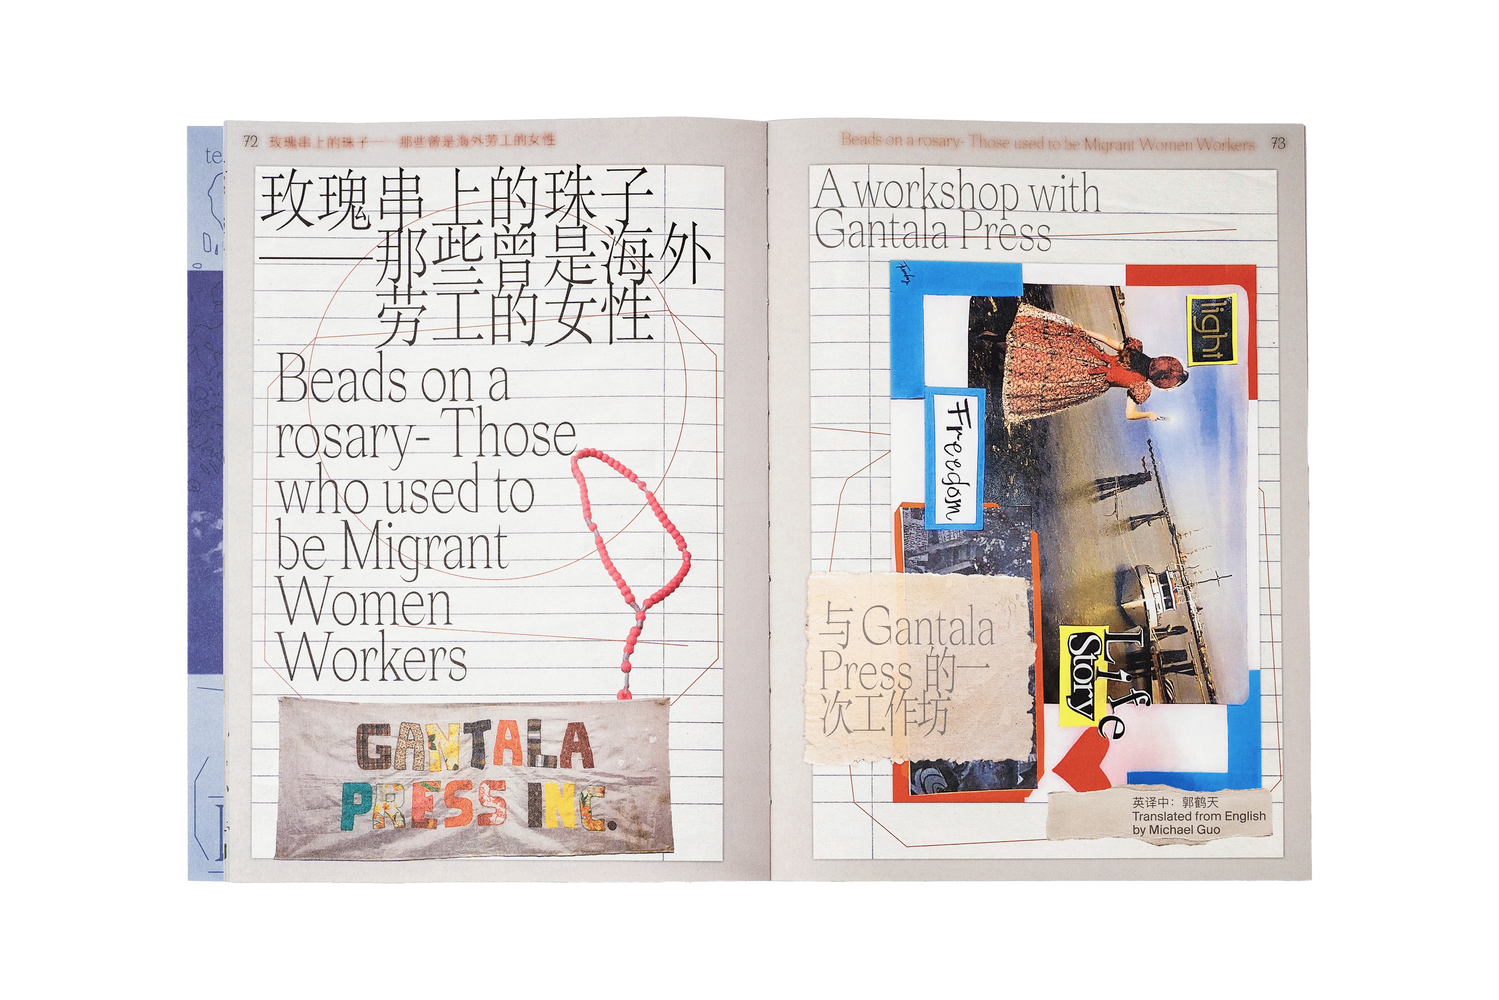 te.
72 玫瑰串上的珠子——那些曾是海外劳工的女性
玫瑰串上的珠子
——那些曾是海外
劳工的女性
Beads on a
rosary- Those
who used to
be Migrant
Women
Workers
GANTALA
PRESS INC.
Beads on a rosary- Those used to be Migrant Women Workers 73
A workshop with
Gantala Press
light
Freedom
Life
Story
与 Gantala
Press 的一
次工作坊
英译中：郭鹤天
Translated from English
by Michael Guo